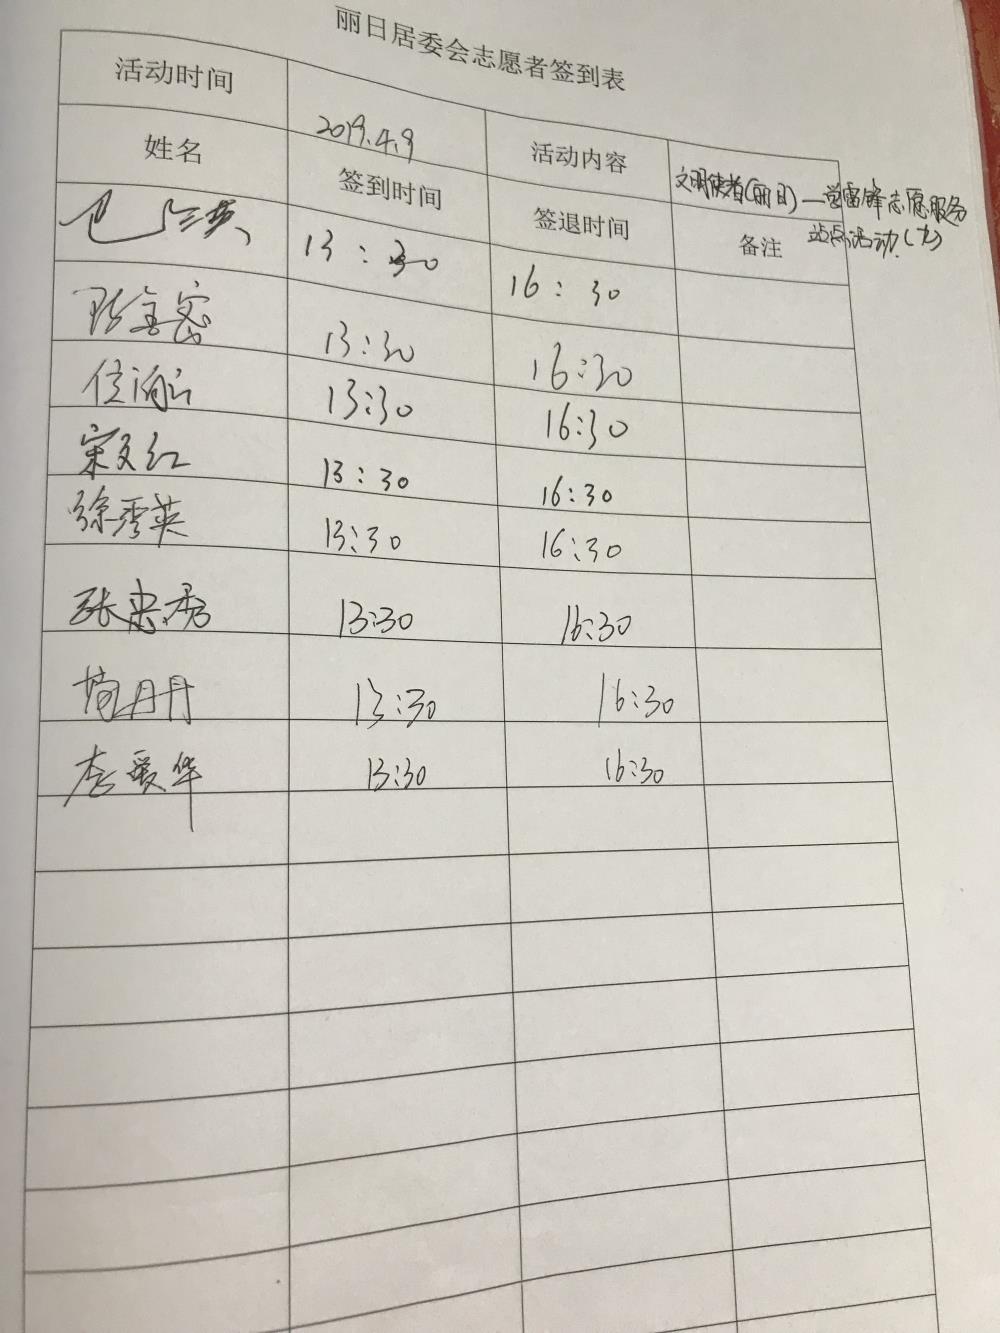 丽日居委会志愿者签到表
活动时间 2019.4.9 活动内容 文明使者(丽日)—学雷锋志愿服务
站点活动(九)
姓名 签到时间 签退时间 备注
13:30 16:30
13:30 16:30
13:30 16:30
宋文红 13:30 16:30
徐秀英 13:30 16:30
张来秀 13:30 16:30
丹丹 13:30 16:30
李爱华 13:30 16:30